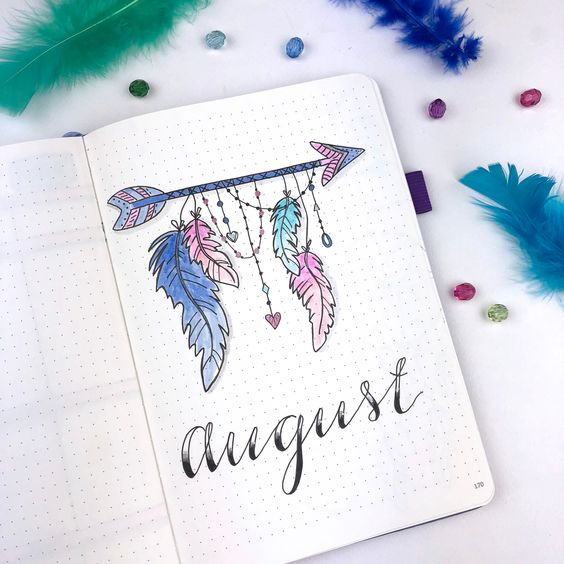 august
170